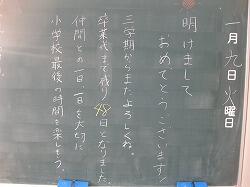 一月九日火曜日
明けまして
おめでとうございます！
三学期からまたよろしくね。
卒業式まで残り48日となりました。
仲間との一日一日を大切に
小学校最後の時間を楽しもう。